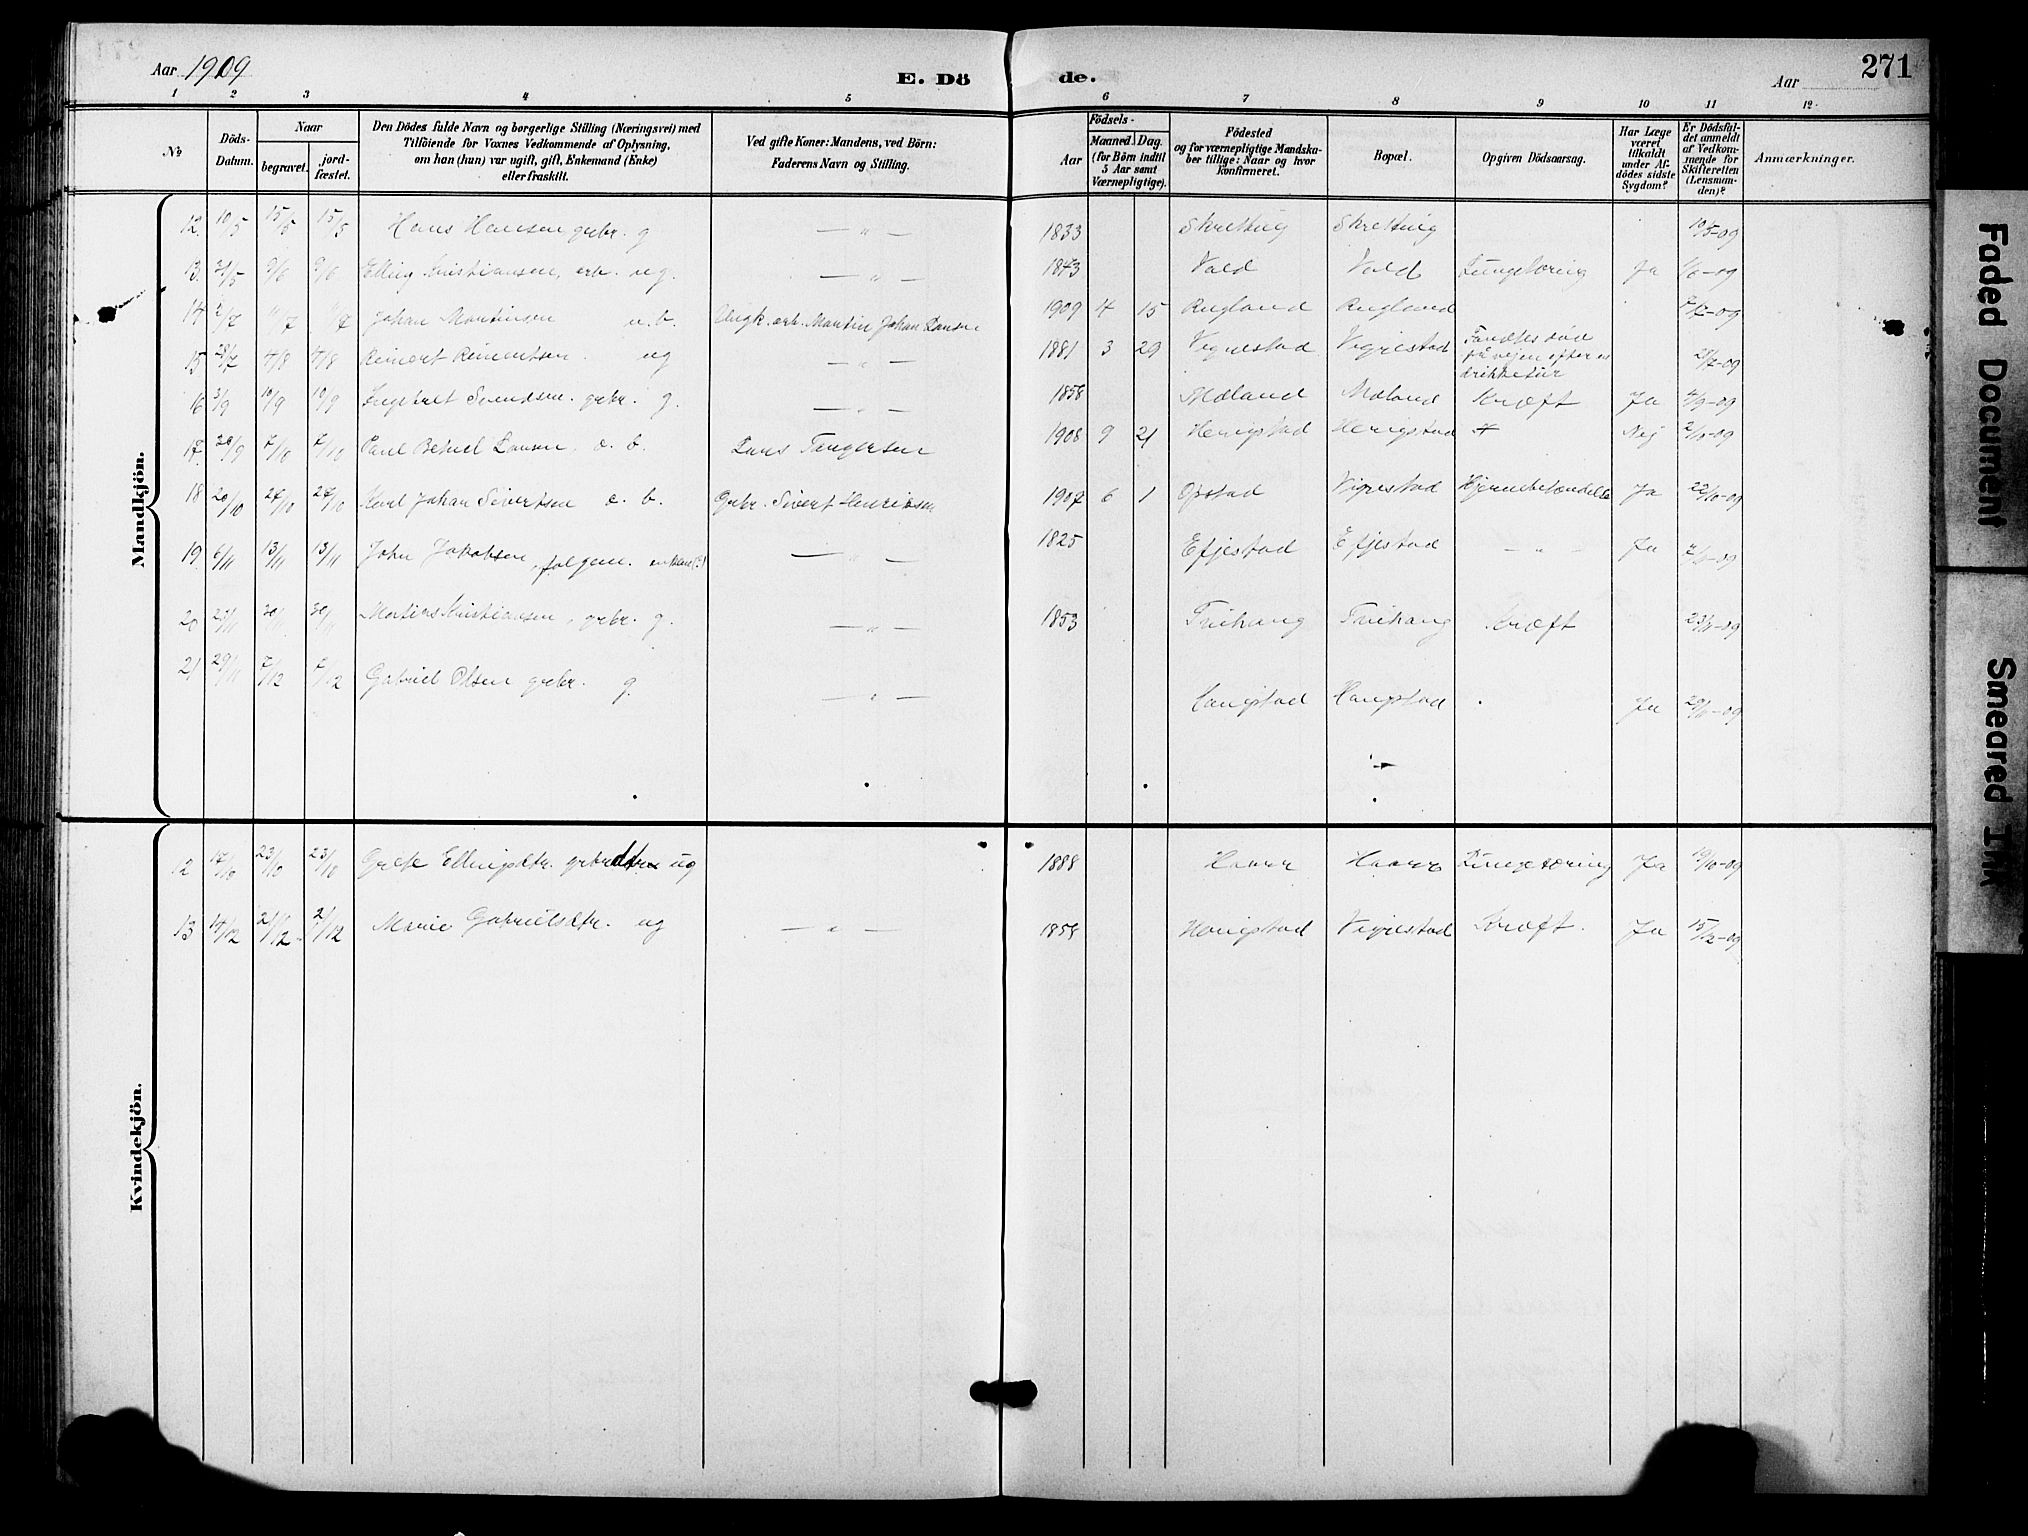 Aar 1909
E. Dö de.
Aar
271
1 2 3 4 5 6 7 8 9 10 11 12
No
Döds-Datum.
Naar
begravet.
jord-fæstet.
Den Dödes fulde Navn og borgerlige Stilling (Næringsvei) med
Tilföiende for Voxnes Vedkommende af Oplysning,
om han (hun) var ugift, gift, Enkemand (Enke)
eller fraskilt.
Ved gifte Koner: Mandens, ved Börn:
Faderens Navn og Stilling.
Födsels-
Aar
Maaned. Dag.
(for Börn indtil
5 Aar samt
Værnepligtige).
Födested
og for værnepligtige Mandska-
ber tillige: Naar og hvor
konfirmeret.
Bopæl.
Opgiven Dödsaarsag.
Har Læge
været
tilkaldt
under Af-
dödes sidste
Sygdom?
Er Dödsfal-
det anmeldt
af Vedkom-
mende for
Skifteretten
(Lensman-
den)?
Anmærkninger.
Mandkjön.
12. 10/5 15/5 15/5 Hans Hansen grbr. g — " — 1833 Skretting Skretting 10/5-09
13. 31/5 9/6 9/6 Elling Kristiansen, arb. ug. — " — 1873 Vold Vold Lungetæring Ja 1/6-09
14 2/7 11/7 11/7 Johan Martinsen u. b. Ungk. arb. Martin Johan Larsen 1909 4 15 Rugland Rugland 7/7-09
15 28/7 4/8 4/8 Reinert Reinertsen ug — " — 1881 3 29 Vigrestad Vigrestad Fandtes död
på vejen efter en
drikketur 29/7-09
16 3/9 10/9 10/9 Ingebret Svendsen. grbr. g. — " — 1858 Mæland Mæland Kræft Ja 4/9-09
17. 28/9 7/10 7/10 Paul Betuel Larsen e. b. Lars Tangersen 1908 9 21 Hongstad Hongstad Nej 2/10-09
18 20/10 27/10 27/10 Karl Johan Sivertsen e. b. Grbr. Sivert Henriksen 1907 6 1 Opstad Vigrestad Hjernebetændelse Ja 22/10-09
19. 6/11 13/11 13/11 John Jakobsen, folgem. — " — 1825 Efjestad Efjestad — " — Ja 7/11-09
20 23/11 30/11 30/11 Matias Kristiansen, grbr. g. — " — 1853 Tuihaug Tuihaug Kræft 23/11-09
21 29/11 7/12 7/12 Gabriel Olsen grbr. g. — " — Hongstad Hongstad Ja 29/11-09
Kvindekjön.
12 17/10 23/10 23/10 Grete Ellingsdtr. ug 1888 Haarr Haarr Lungetæring Ja 19/10-09
13 14/12 21/12 21/12 Marie Gabrielsdtr. ug — " — 1858 Hongstad Vigrestad Kræft. Ja 15/12-09
Faded Document
Smeared Ink